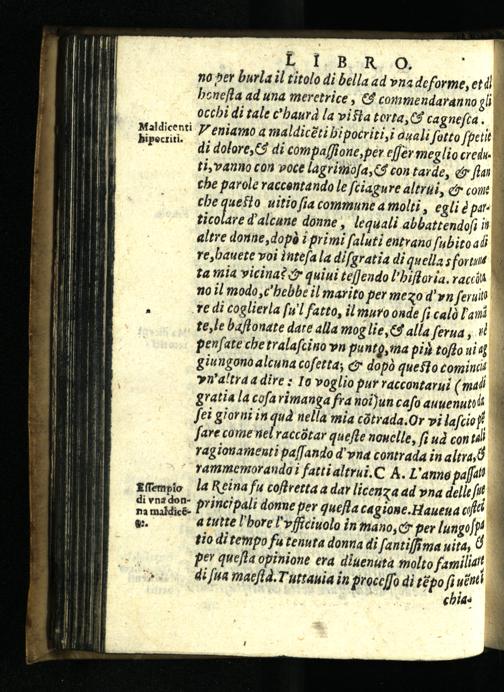 LIBRO.
no per burla il titolo di bella ad vna deforme, et di
honesta ad una meretrice, & commendaranno gli
occhi di tale c'haurà la vista torta, & cagnesca.
Maldicenti
hipocriti.
Veniamo a maldicẽti hipocriti, i quali sotto spetie
di dolore, & di compassione, per esser meglio credu-
ti, vanno con voce lagrimosa, & con tarde, & stan
che parole raccontando le sciagure altrui, & come
che questo uitio sia commune a molti, egli è par-
ticolare d'alcune donne, lequali abbattendosi in
altre donne, dopò i primi saluti entrano subito a di
re, hauete voi intesa la disgratia di quella sfortuna
ta mia vicina? & quiui tessendo l'historia. raccõta
no il modo, c'hebbe il marito per mezo d'vn seruito
re di coglierla su'l fatto, il muro onde si calò l'amã
te, le bastonate date alla moglie, & alla serua, nè
pensate che tralascino vn punto, ma più tosto ui ag
giungono alcuna cosetta; & dopò questo comincia
vn'altra a dire: Io voglio pur raccontarui (ma di
gratia la cosa rimanga fra noi) un caso auuenuto da
sei giorni in quà nella mia cõtrada. Or vi lascio pẽ
sare come nel raccõtar queste nouelle, si uà con tali
ragionamenti passando d'vna contrada in altra, &
rammemorando i fatti altrui. C A. L'anno passato
Essempio
di vna don-
na maldicẽ-
te.
la Reina fu costretta a dar licenza ad vna delle sue
principali donne per questa cagione. Haueua costei
a tutte l'hore l'vfficiuolo in mano, & per lungo spa
tio di tempo fu tenuta donna di santissima uita, &
per questa opinione era diuenuta molto familiare
di sua maestà. Tuttauia in processo di tẽpo si uẽne ĩ
chia-